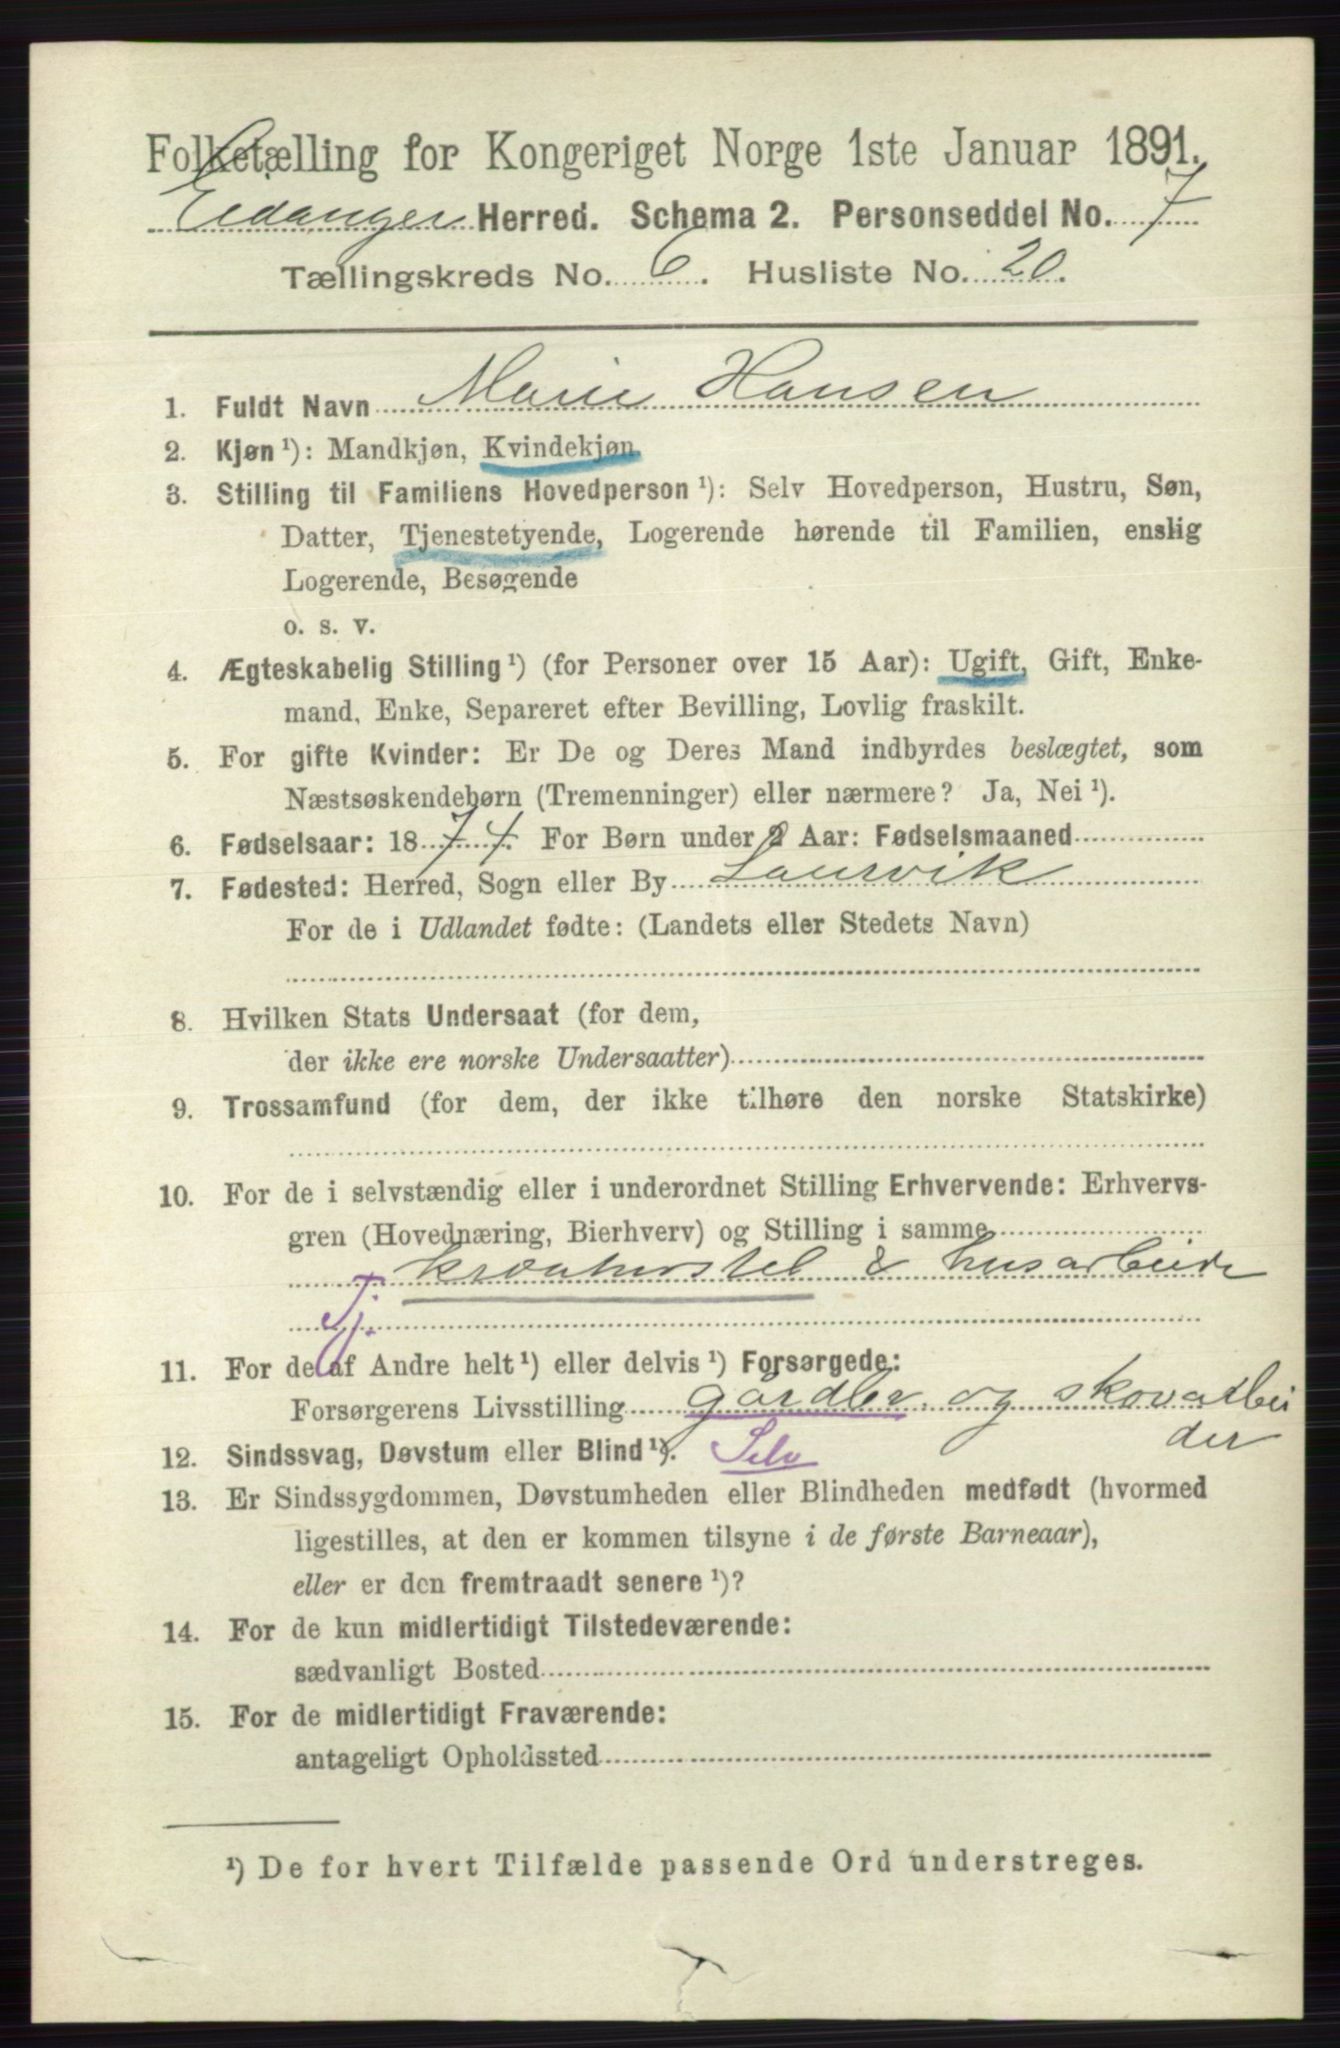 Folketælling for Kongeriget Norge 1ste Januar 1891.
Eidanger Herred. Schema 2. Personseddel No. 7
Tællingskreds No. 6. Husliste No. 20.
1. Fuldt Navn Marie Hansen
2. Kjøn ¹): Mandkjøn, Kvindekjøn
3. Stilling til Familiens Hovedperson ¹): Selv Hovedperson, Hustru, Søn,
Datter, Tjenestetyende, Logerende hørende til Familien, enslig
Logerende, Besøgende
o. s. v.
4. Ægteskabelig Stilling ¹) (for Personer over 15 Aar): Ugift, Gift, Enke-
mand, Enke, Separeret efter Bevilling, Lovlig fraskilt.
5. For gifte Kvinder: Er De og Deres Mand indbyrdes beslægtet, som
Næstsøskendebørn (Tremenninger) eller nærmere? Ja, Nei ¹).
6. Fødselsaar: 1874. For Børn under 2 Aar: Fødselsmaaned
7. Fødested: Herred, Sogn eller By Laurvik
For de i Udlandet fødte: (Landets eller Stedets Navn)
8. Hvilken Stats Undersaat (for dem,
der ikke ere norske Undersaatter)
9. Trossamfund (for dem, der ikke tilhøre den norske Statskirke)
10. For de i selvstændig eller i underordnet Stilling Erhvervende: Erhvervs-
gren (Hovednæring, Bierhverv) og Stilling i samme
& husarbeide
Tj.
11. For de af Andre helt ¹) eller delvis ¹) Forsørgede:
Forsørgerens Livsstilling gårdbr. og skovarbei
der
12. Sindssvag, Døvstum eller Blind ¹). Selv
13. Er Sindssygdommen, Døvstumheden eller Blindheden medfødt (hvormed
ligestilles, at den er kommen tilsyne i de første Barneaar),
eller er den fremtraadt senere ¹)?
14. For de kun midlertidigt Tilstedeværende:
sædvanligt Bosted
15. For de midlertidigt Fraværende:
antageligt Opholdssted
¹) De for hvert Tilfælde passende Ord understreges.